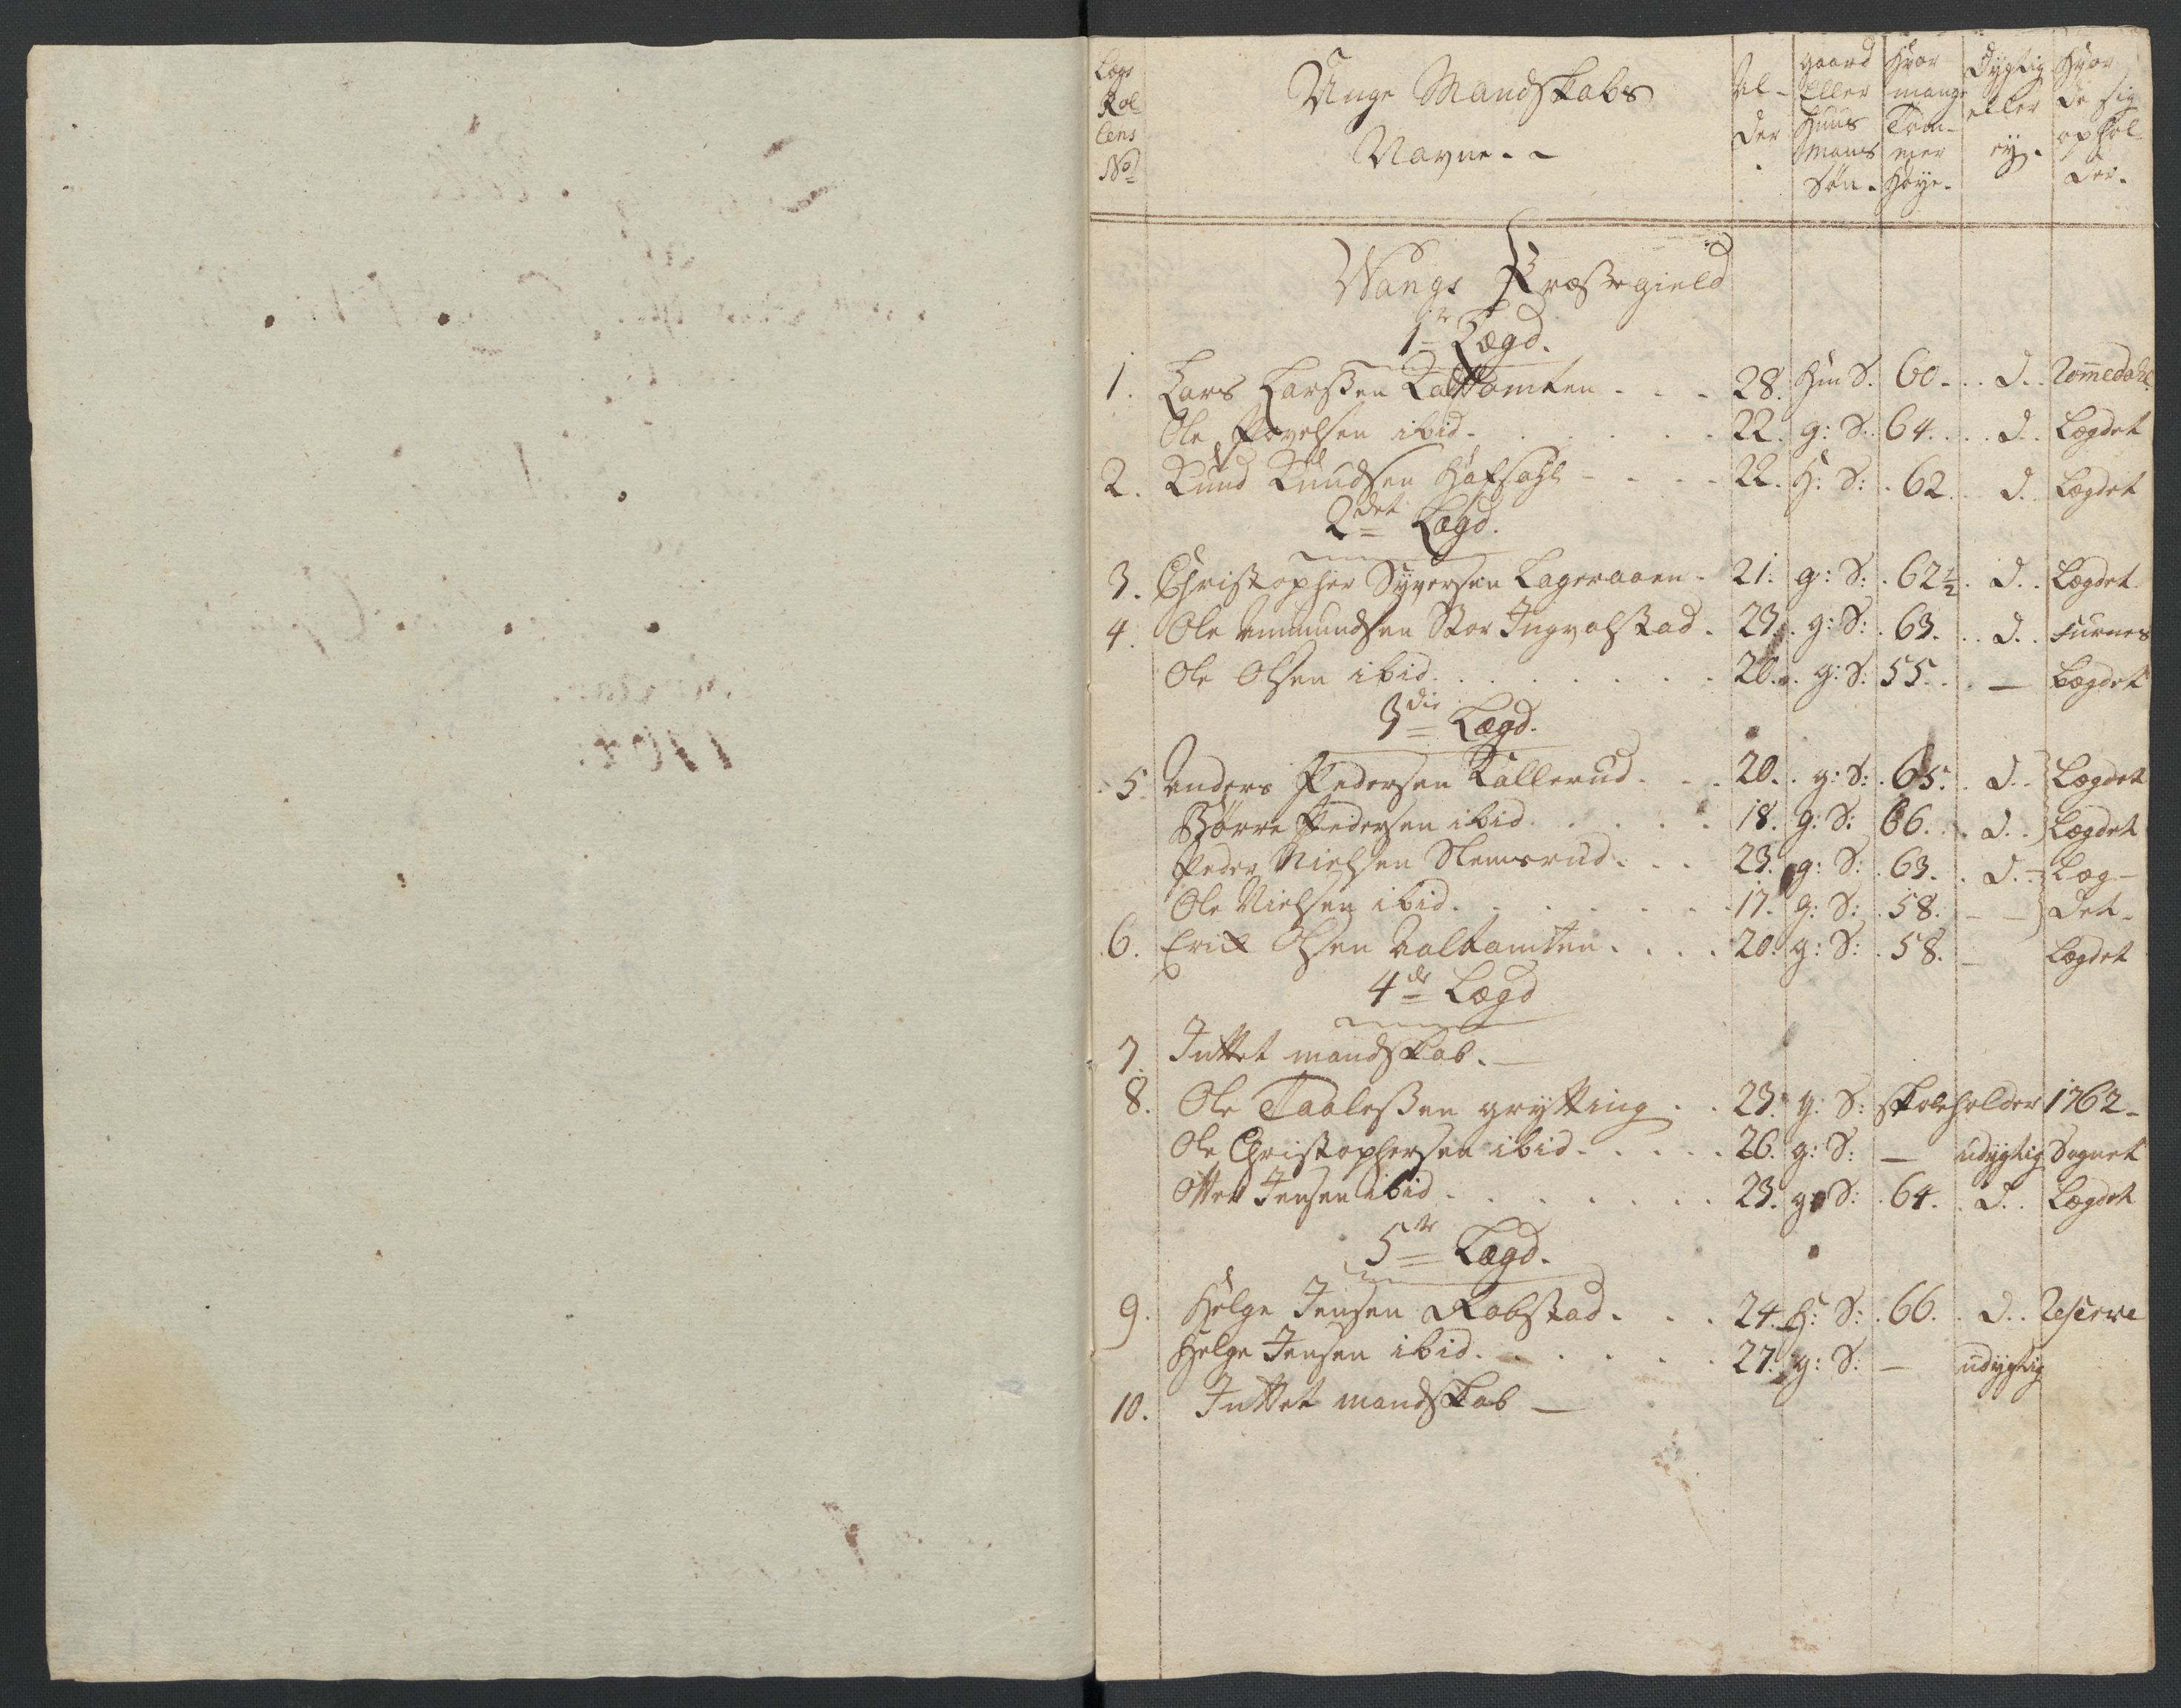 Lægs Rol lens No
Unge Mandskabs Navne. -
Al- der
gaard Eller Huus Mans Søn.
Hvor mange Tom- mer Høye.
Dygtig eller ey.
Hvor de sig ophol- der.
Wangs Præstegield
1te Lægd.
1. Lars Larsen 28. Hm S. 60. d. Romedahl
Ole Povelsen ibid. 22. g: S: 64. d. Lægdet
2. Knud Knudsen Hafsahl 22. H: S: 62. d. Lægdet
2det Lægd.
3. Christopher Syversen Lageraaen. 21. g: S: 62½. d. Lægdet
4. Ole Amundsen Stor Ingvalstad. 23. g: S: 63. d. Furnes
Ole Olsen ibid. 20. g: S: 55. — Lægdet
3die Lægd.
5. Anders Pedersen Kallerud. 20. g: S: 65. d. Lægdet
Børre Pedersen ibid 18. g: S: 66. d. Lægdet
Peder Nielsen Slemsrud. 23. g: S: 63. d. Læg-
Ole Nielsen ibid. 17. g: S: 58. — det.
6. Erick Olsen 20. g: S: 58. — Lægdet
4de Lægd
7. Intet mandskab. —
8. Ole Taalesen grytting. 23. g: S: Skoleholder 1762.
Ole Christophersen ibid. 26. g: S: — udygtig Sognet
Otter Jensen ibid. 23. g: S: 64. d. Lægdet
5te Lægd.
9. Helge Jensen Robstad. 24. H: S: 66. d. Reserve
Helge Jensen ibid. 27. g: S: — udygtig
10. Intet mandskab —